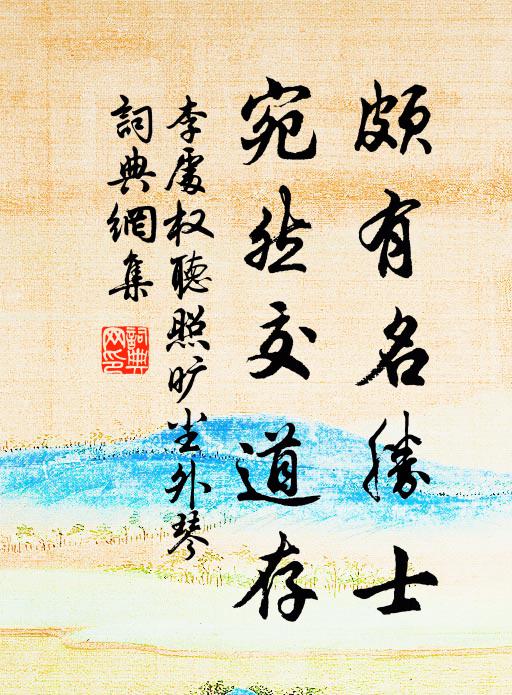 頗有名勝士
宛然交道存
李處权聽照旷坐外琴
詞典網集
詞典網印